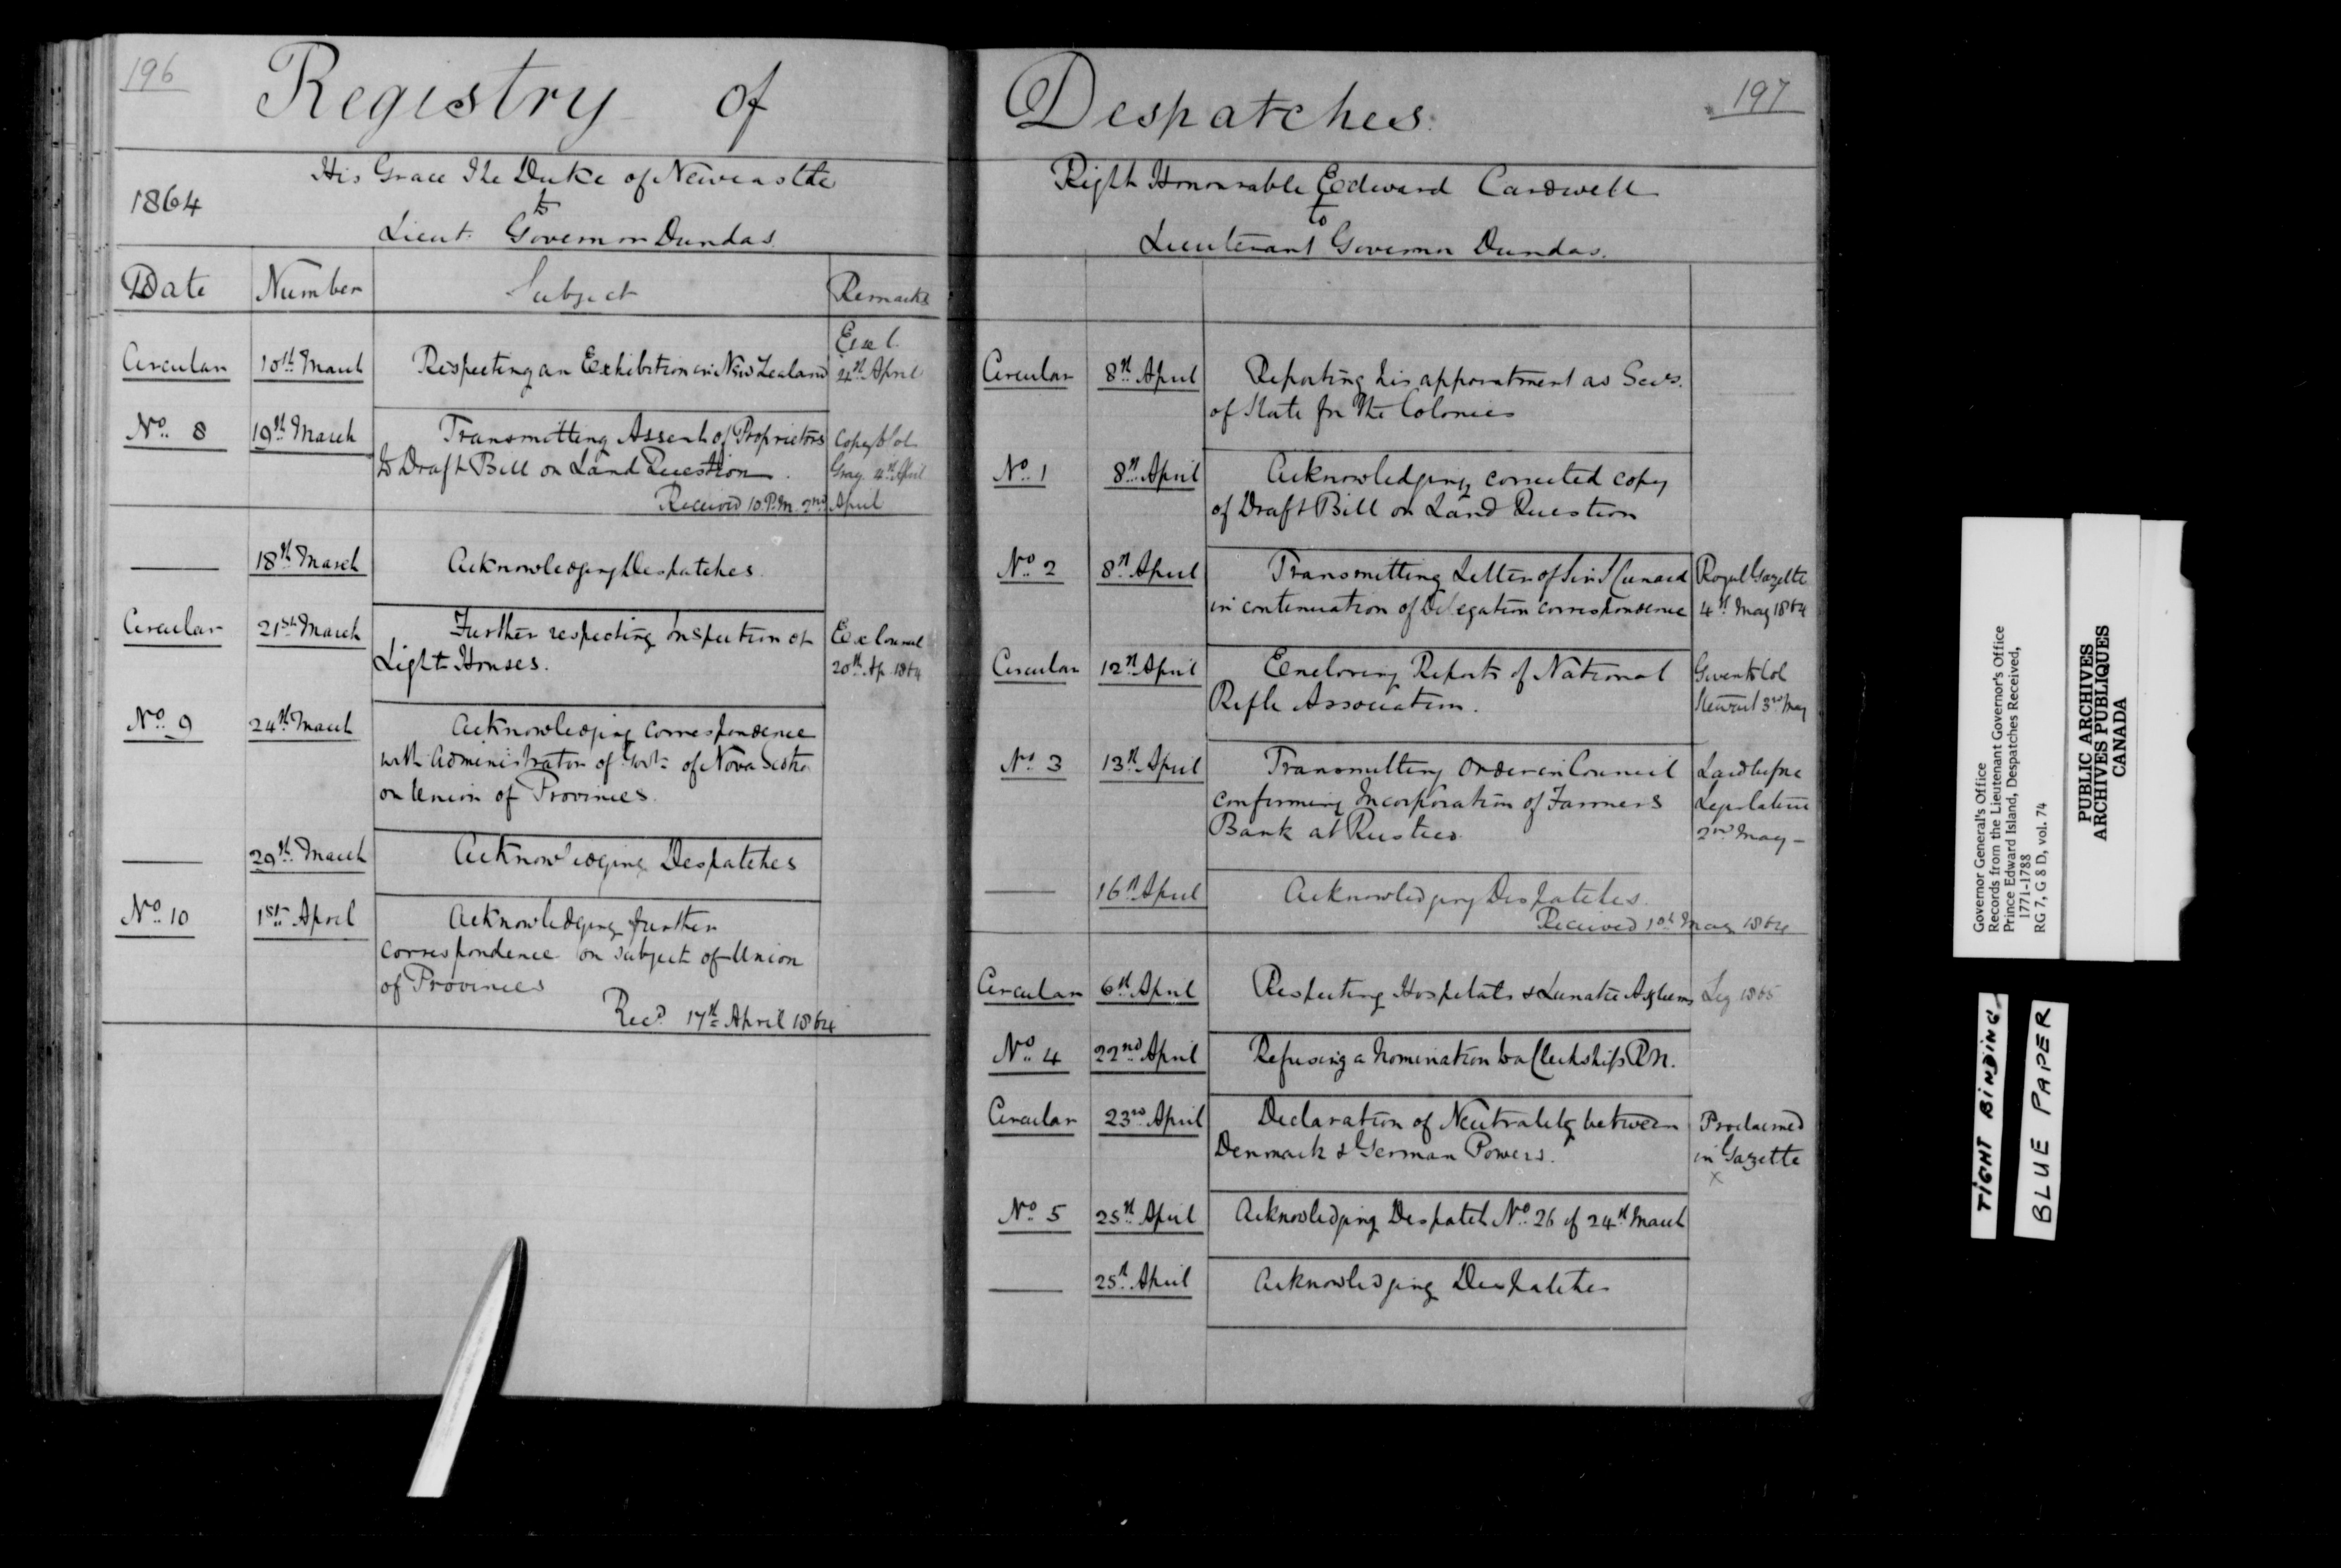 196
Registry of
1864
His Grace The Duke of Newcastle
to
Lieut. Governor Dundas.
Date Number Subject Remarks
Circular 10th March Respecting an Exhibition in New Zealand 4th April
No. 8 19th March Transmitting Assent of Proprietors Copy to Col
to Draft Bill on Land Question. Gray 4th April
Received 10 P.M. 2nd April
18th March Acknowledging Despatches.
Circular 21st March Further respecting Inspection of Ex Council
Light Houses. 20th Ap. 1864
No. 9 24th March Acknowledging correspondence
with Administrator of Govt. of Nova Scotia
on Union of Provinces.
29th March Acknowledging Despatches
No. 10 1st April Acknowledging further
correspondence on subject of Union
of Provinces
Recd. 17th April 1864
197
Despatches.
Right Honourable Edward Cardwell
to
Lieutenant Governor Dundas.
Circular 8th April Reporting his appointment as Secy.
of State for the Colonies
No. 1 8th April Acknowledging corrected copy
of Draft Bill on Land Question
No. 2 8th April Transmitting Letter of Sir S Cunard Royal Gazette
in continuation of Delegation correspondence 4th May 1864
Circular 12th April Enclosing Reports of National Given to Col
Rifle Association. Stewart 3rd May
No. 3 13th April Transmitting Order in Council Laid before
confirming Incorporation of Farmers Legislature
Bank at Rustico. 2nd May -
16th April Acknowledging Despatches.
Received May 1864
Circular 6th April Respecting Hospitals & Lunatic Asylums Leg 1865
No. 4 22nd April Refusing a Nomination to a Clerkship R.N.
Circular 23rd April Declaration of Neutrality between Proclaimed
Denmark & German Powers. in Gazette
x
No. 5 25th April Acknowledging Despatch No. 26 of 24th March
25th April Acknowledging Despatches
Governor General's Office
Records from the Lieutenant Governor's Office
Prince Edward Island, Despatches Received,
1771-1788
RG 7, G 8 D, vol. 74
PUBLIC ARCHIVES
ARCHIVES PUBLIQUES
CANADA
TIGHT BINDING
BLUE PAPER